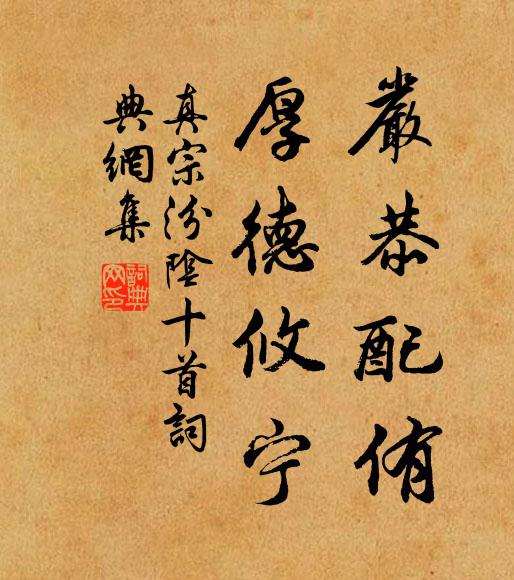 嚴恭配侑
厚德攸宁
真宗汾陰十首詞
典網集
詞典
网印